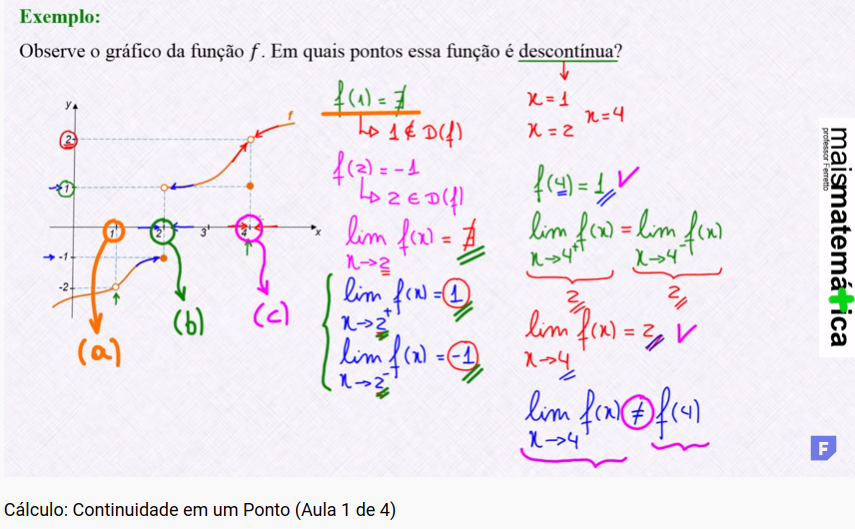 Exemplo:
Observe o gráfico da função f. Em quais pontos essa função é descontínua?
y
2
1
-1
-2
1
2
3
4
x
f
(a)
(b)
(c)
f(1) = ∄
↳ 1 ∉ D(f)
f(2) = -1
↳ 2 ∈ D(f)
lim f(x) = ∄
x→2
lim f(x) = 1
x→2⁺
lim f(x) = -1
x→2⁻
x = 1
x = 2
x = 4
f(4) = 1 ✓
lim f(x) = lim f(x)
x→4⁺ x→4⁻
2 2
lim f(x) = 2 ✓
x→4
lim f(x) ≠ f(4)
x→4
maismatemática
professor Ferretto
F
Cálculo: Continuidade em um Ponto (Aula 1 de 4)